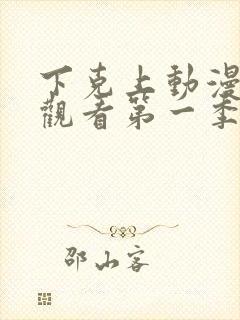 下克上動漫
觀看第一季
邵山客